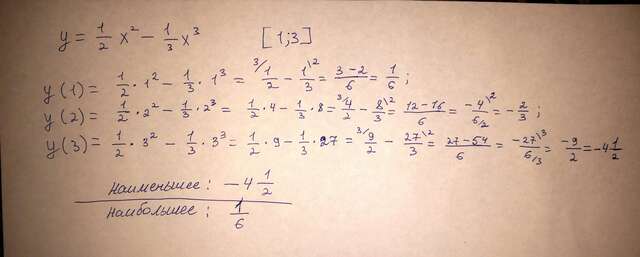 y = 1/2 x² − 1/3 x³ [1;3]
y(1) = 1/2 · 1² − 1/3 · 1³ = ³/1/2 − 1/3\² = 3−2/6 = 1/6 ;
y(2) = 1/2 · 2² − 1/3 · 2³ = 1/2 · 4 − 1/3 · 8 = ³/4/2 − 8/3\² = 12−16/6 = −4\²/6/2 = −2/3 ;
y(3) = 1/2 · 3² − 1/3 · 3³ = 1/2 · 9 − 1/3 · 27 = ³/9/2 − 27/3\² = 27−54/6 = −27\³/6/3 = −9/2 = −4 1/2
Наименьшее: −4 1/2
Наибольшее: 1/6